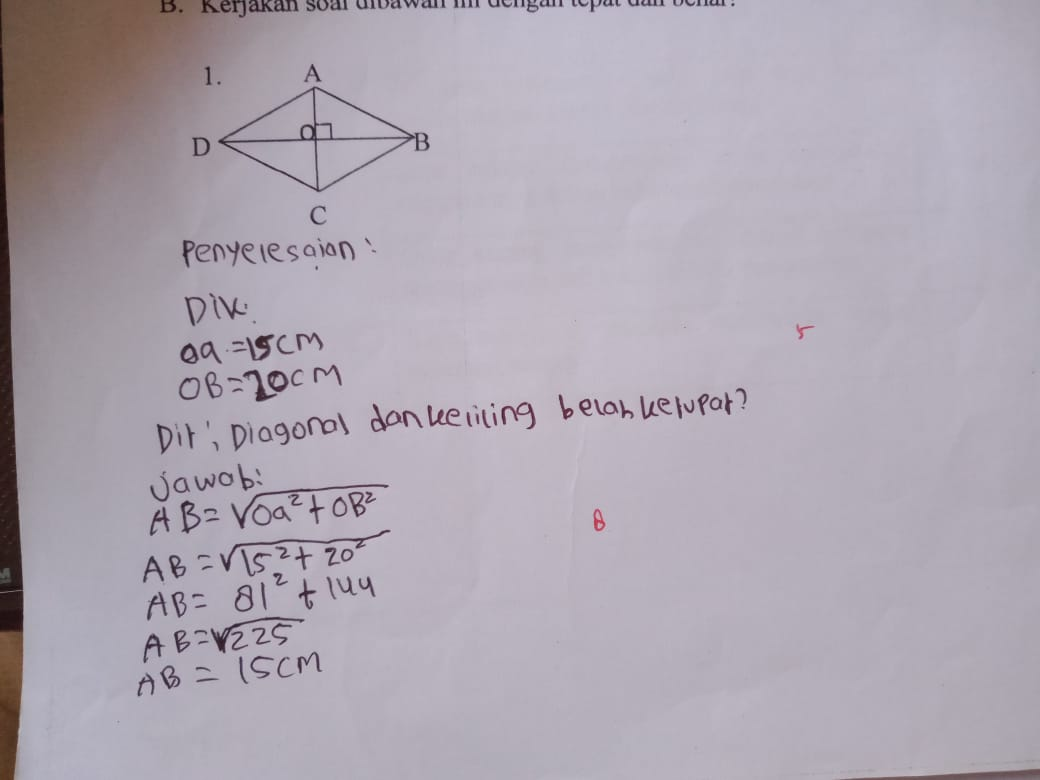 B. Kerjakan soal dibawah ini dengan tepat dan benar!
1.
A
O
D
B
C
Penyelesaian:
Dik:
oa = 15 cm
OB = 20 cm
5
Dit: Diagonal dan keliling belah ketupat?
Jawab:
AB = √Oa² + OB²
8
AB = √15² + 20²
AB = 81² + 144
AB = √225
AB = 15 cm